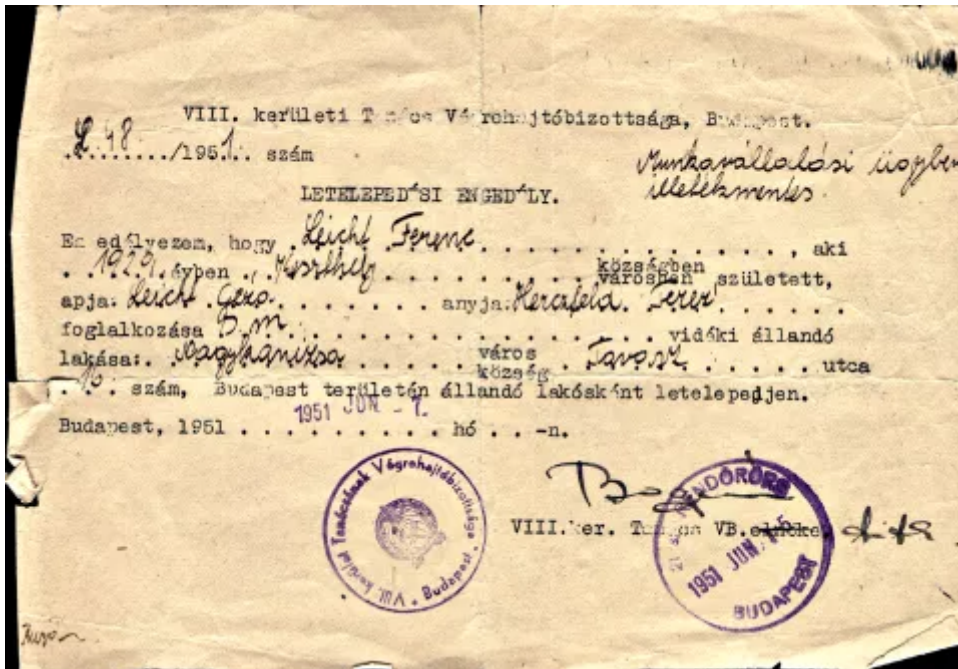 VIII. kerületi Tanács Végrehajtóbizottsága, Budapest.
L 48 /1951. szám
Munkavállalási ügyben
illetékmentes.
LETELEPEDÉSI ENGEDÉLY.
Engedélyezem, hogy Leicht Ferenc, aki
1929. évben, Keszthely községben városban született,
apja: Leicht Géza anyja: Herczfeld Teréz
foglalkozása vidéki állandó
lakása: Nagykanizsa város község Tavasz utca
szám, Budapest területén állandó lakósként letelepedjen.
Budapest, 1951 1951 JUN hó -n.
VIII. kerület Tanácsának Végrehajtóbizottsága * Budapest *
VIII.ker. Tanács VB.elnöke
RENDŐRŐRS
1951 JUN
BUDAPEST